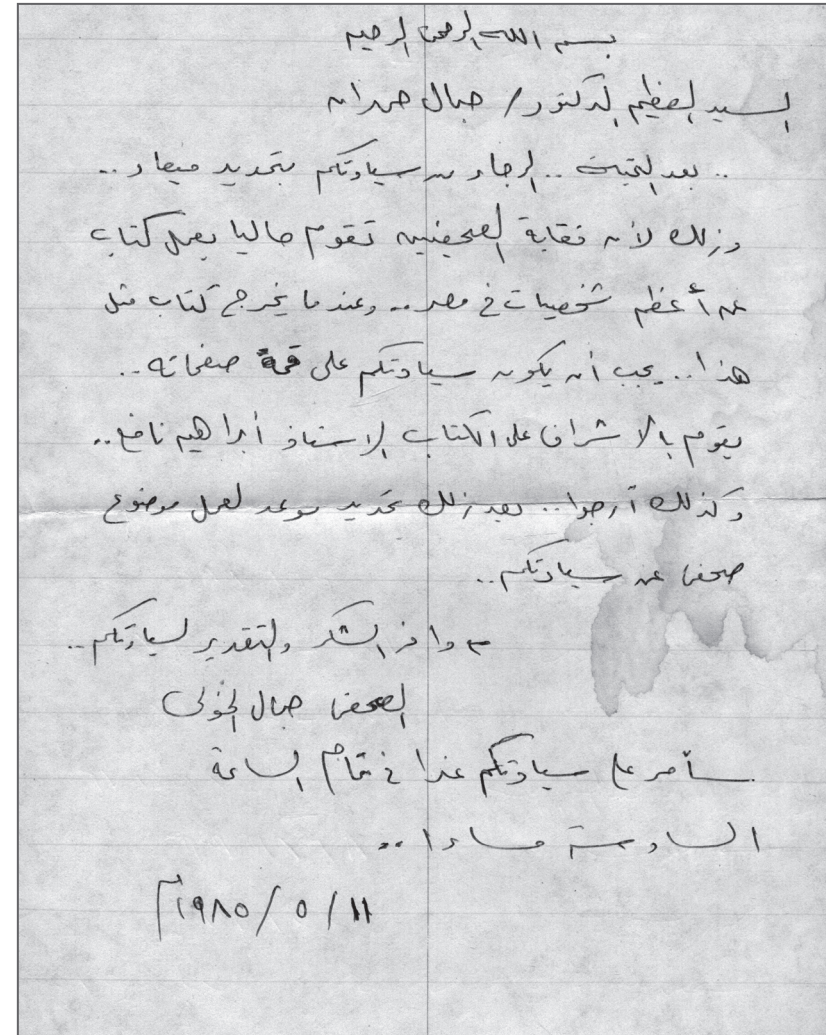 بسم الله الرحمن الرحيم
السيد العظيم الدكتور / جمال حمدان
.. بعد التحية .. الرجاء من سيادتكم بتحديد ميعاد ..
وذلك لأن نقابة الصحفيين تقوم حاليا بعمل كتاب
عن أعظم شخصيات في مصر .. وعندما يخرج كتاب مثل
هذا .. يجب أن يكون سيادتكم على قمة صفحاته ..
يقوم بالاشراف على الكتاب الاستاذ أبراهيم نافع ..
وكذلك أرجوا .. بعد ذلك تحديد موعد لعمل موضوع
صحفى عن سيادتكم ..
مع وافر الشكر والتقدير لسيادتكم ..
الصحفى جمال الخولى
سأمر على سيادتكم غدا في تمام الساعة
السادسة مساءا ..
١١ / ٥ / ١٩٨٥م